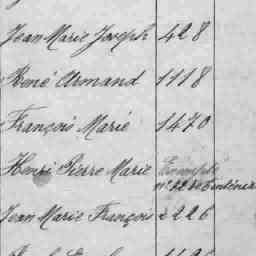 Jean Marie Joseph 428
René Armand 1118
François Marie 1470
Henri Pierre Marie Exempté
Jean Marie François 2226